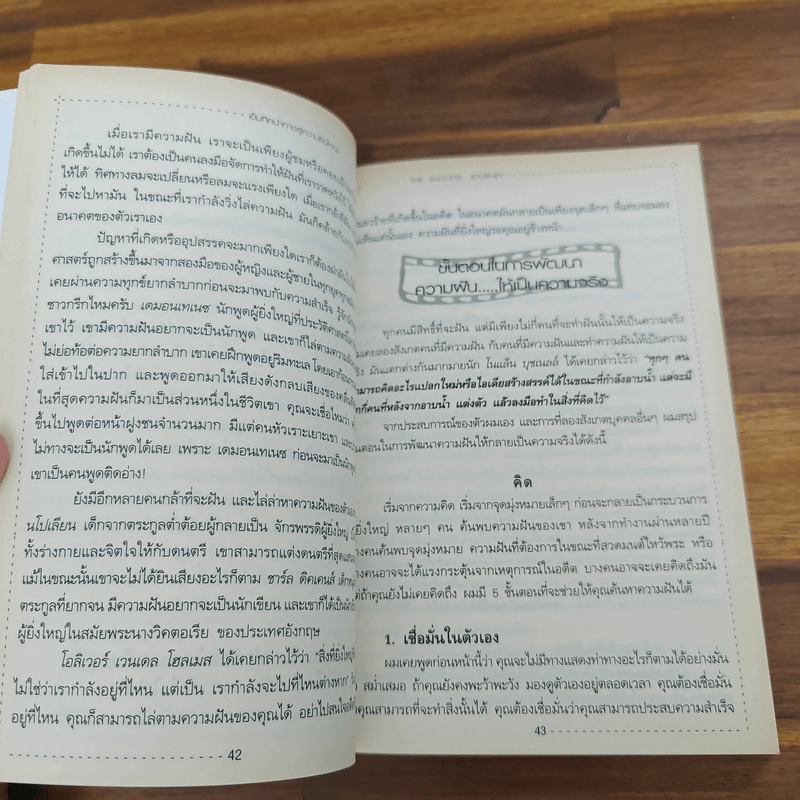 เข็มทิศนำทางสู่ความยิ่งใหญ่
เมื่อเรามีความฝัน เราจะเป็นเพียงผู้ชมหรือคอยแล้ว
เกิดขึ้นไม่ได้ เราต้องเป็นคนลงมือจัดการทำให้ฝันที่เรา
ให้ได้ ทิศทางลมจะเปลี่ยนหรือลมจะแรงเพียงใด เมื่อเรา
ที่จะไปหามัน ในขณะที่เรากำลังวิ่งไล่ความฝัน มันก็
อนาคตของตัวเราเอง
ปัญหาที่เกิดหรืออุปสรรคจะมากเพียงใดเราก็ต้อง
ศาสตร์ถูกสร้างขึ้นมาจากสองมือของผู้หญิงและผู้ชายในทุกยุค
เคยผ่านความทุกข์ยากลำบากก่อนจะมาพบกับความสำเร็จ
ชาวกรีกไหมครับ เดมอนเทเนซ นักพูดผู้ยิ่งใหญ่ที่ประวัติศาสตร์
เขาไว้ เขามีความฝันอยากจะเป็นนักพูด และเขาก็ไล่ตามความฝัน
ไม่ย่อท้อต่อความยากลำบาก เขาเคยฝึกพูดอยู่ริมทะเล โดยเอา
ใส่เข้าไปในปาก และพูดออกมาให้เสียงดังกลบเสียงของคลื่น
ในที่สุดความฝันก็มาเป็นส่วนหนึ่งในชีวิตเขา คุณจะเชื่อไหมว่า
ขึ้นไปพูดต่อหน้าฝูงชนจำนวนมาก มีแต่คนหัวเราะเยาะเขา และ
ไม่ทางจะเป็นนักพูดได้เลย เพราะ เดมอนเทเนซ ก่อนจะมาเป็นนักพูด
เขาเป็นคนพูดติดอ่าง!
ยังมีอีกหลายคนกล้าที่จะฝัน และไล่ล่าหาความฝันของตัวเอง
นโปเลียน เด็กจากตระกูลต่ำต้อยผู้กลายเป็น จักรพรรดิผู้ยิ่งใหญ่
ทั้งร่างกายและจิตใจให้กับดนตรี เขาสามารถแต่งดนตรีที่สุด
แม้ในขณะนั้นเขาจะไม่ได้ยินเสียงอะไรก็ตาม ชาร์ล ดิคเคนส์ เด็ก
ตระกูลที่ยากจน มีความฝันอยากจะเป็นนักเขียน และเขาก็ได้เป็น
ผู้ยิ่งใหญ่ในสมัยพระนางวิคตอเรีย ของประเทศอังกฤษ
โอลิเวอร์ เวนเดล โฮลเมส ได้เคยกล่าวไว้ว่า "สิ่งที่ยิ่งใหญ่
ไม่ใช่ว่าเรากำลังอยู่ที่ไหน แต่เป็น เรากำลังจะไปที่ไหนต่างหาก"
อยู่ที่ไหน คุณก็สามารถไล่ตามความฝันของคุณได้ อย่าไปสนใจ
42
THE SUCCESS JOURNEY
เลวร้ายที่เกิดขึ้นในอดีต ในอนาคตมันกลายเป็นเพียงจุดเล็กๆ ที่แทบจะมอง
เห็นแค่นั้นเอง ความฝันที่ยิ่งใหญ่รอคุณอยู่ข้างหน้า
ขั้นตอนในการพัฒนา
ความฝัน.....ให้เป็นความจริง
ทุกคนมีสิทธิ์ที่จะฝัน แต่มีเพียงไม่กี่คนที่จะทำฝันนั้นให้เป็นความจริง
ผมเคยลองสังเกตคนที่มีความฝัน กับคนที่มีความฝันและทำความฝันให้เป็น
จริง มันแตกต่างกันมากมายนัก โนแล็น บุชเนลล์ ได้เคยกล่าวไว้ว่า "ทุกๆ คน
สามารถคิดอะไรแปลกใหม่หรือไอเดียสร้างสรรค์ได้ในขณะที่กำลังอาบน้ำ แต่จะมี
กี่คนที่หลังจากอาบน้ำ แต่งตัว แล้วลงมือทำในสิ่งที่คิดไว้"
จากประสบการณ์ของตัวผมเอง และการที่ลองสังเกตบุคคลอื่นๆ ผมสรุป
ขั้นตอนในการพัฒนาความฝันให้กลายเป็นความจริงได้ดังนี้
คิด
เริ่มจากความคิด เริ่มจากจุดมุ่งหมายเล็กๆ ก่อนจะกลายเป็นกระบวนการ
ยิ่งใหญ่ หลายๆ คน ค้นพบความฝันของเขา หลังจากทำงานผ่านหลายปี
บางคนค้นพบจุดมุ่งหมาย ความฝันที่ต้องการในขณะที่สวดมนต์ไหว้พระ หรือ
บางคนอาจจะได้แรงกระตุ้นจากเหตุการณ์ในอดีต บางคนอาจจะเคยคิดถึงมัน
แต่ถ้าคุณยังไม่เคยคิดถึง ผมมี 5 ขั้นตอนที่จะช่วยให้คุณค้นหาความฝันได้
1. เชื่อมั่นในตัวเอง
ผมเคยพูดก่อนหน้านี้ว่า คุณจะไม่มีทางแสดงท่าทางอะไรก็ตามได้อย่างมั่น
สม่ำเสมอ ถ้าคุณยังคงพะว้าพะวัง มองดูตัวเองอยู่ตลอดเวลา คุณต้องเชื่อมั่น
คุณสามารถที่จะทำสิ่งนั้นได้ คุณต้องเชื่อมั่นว่าคุณสามารถประสบความสำเร็จ
43